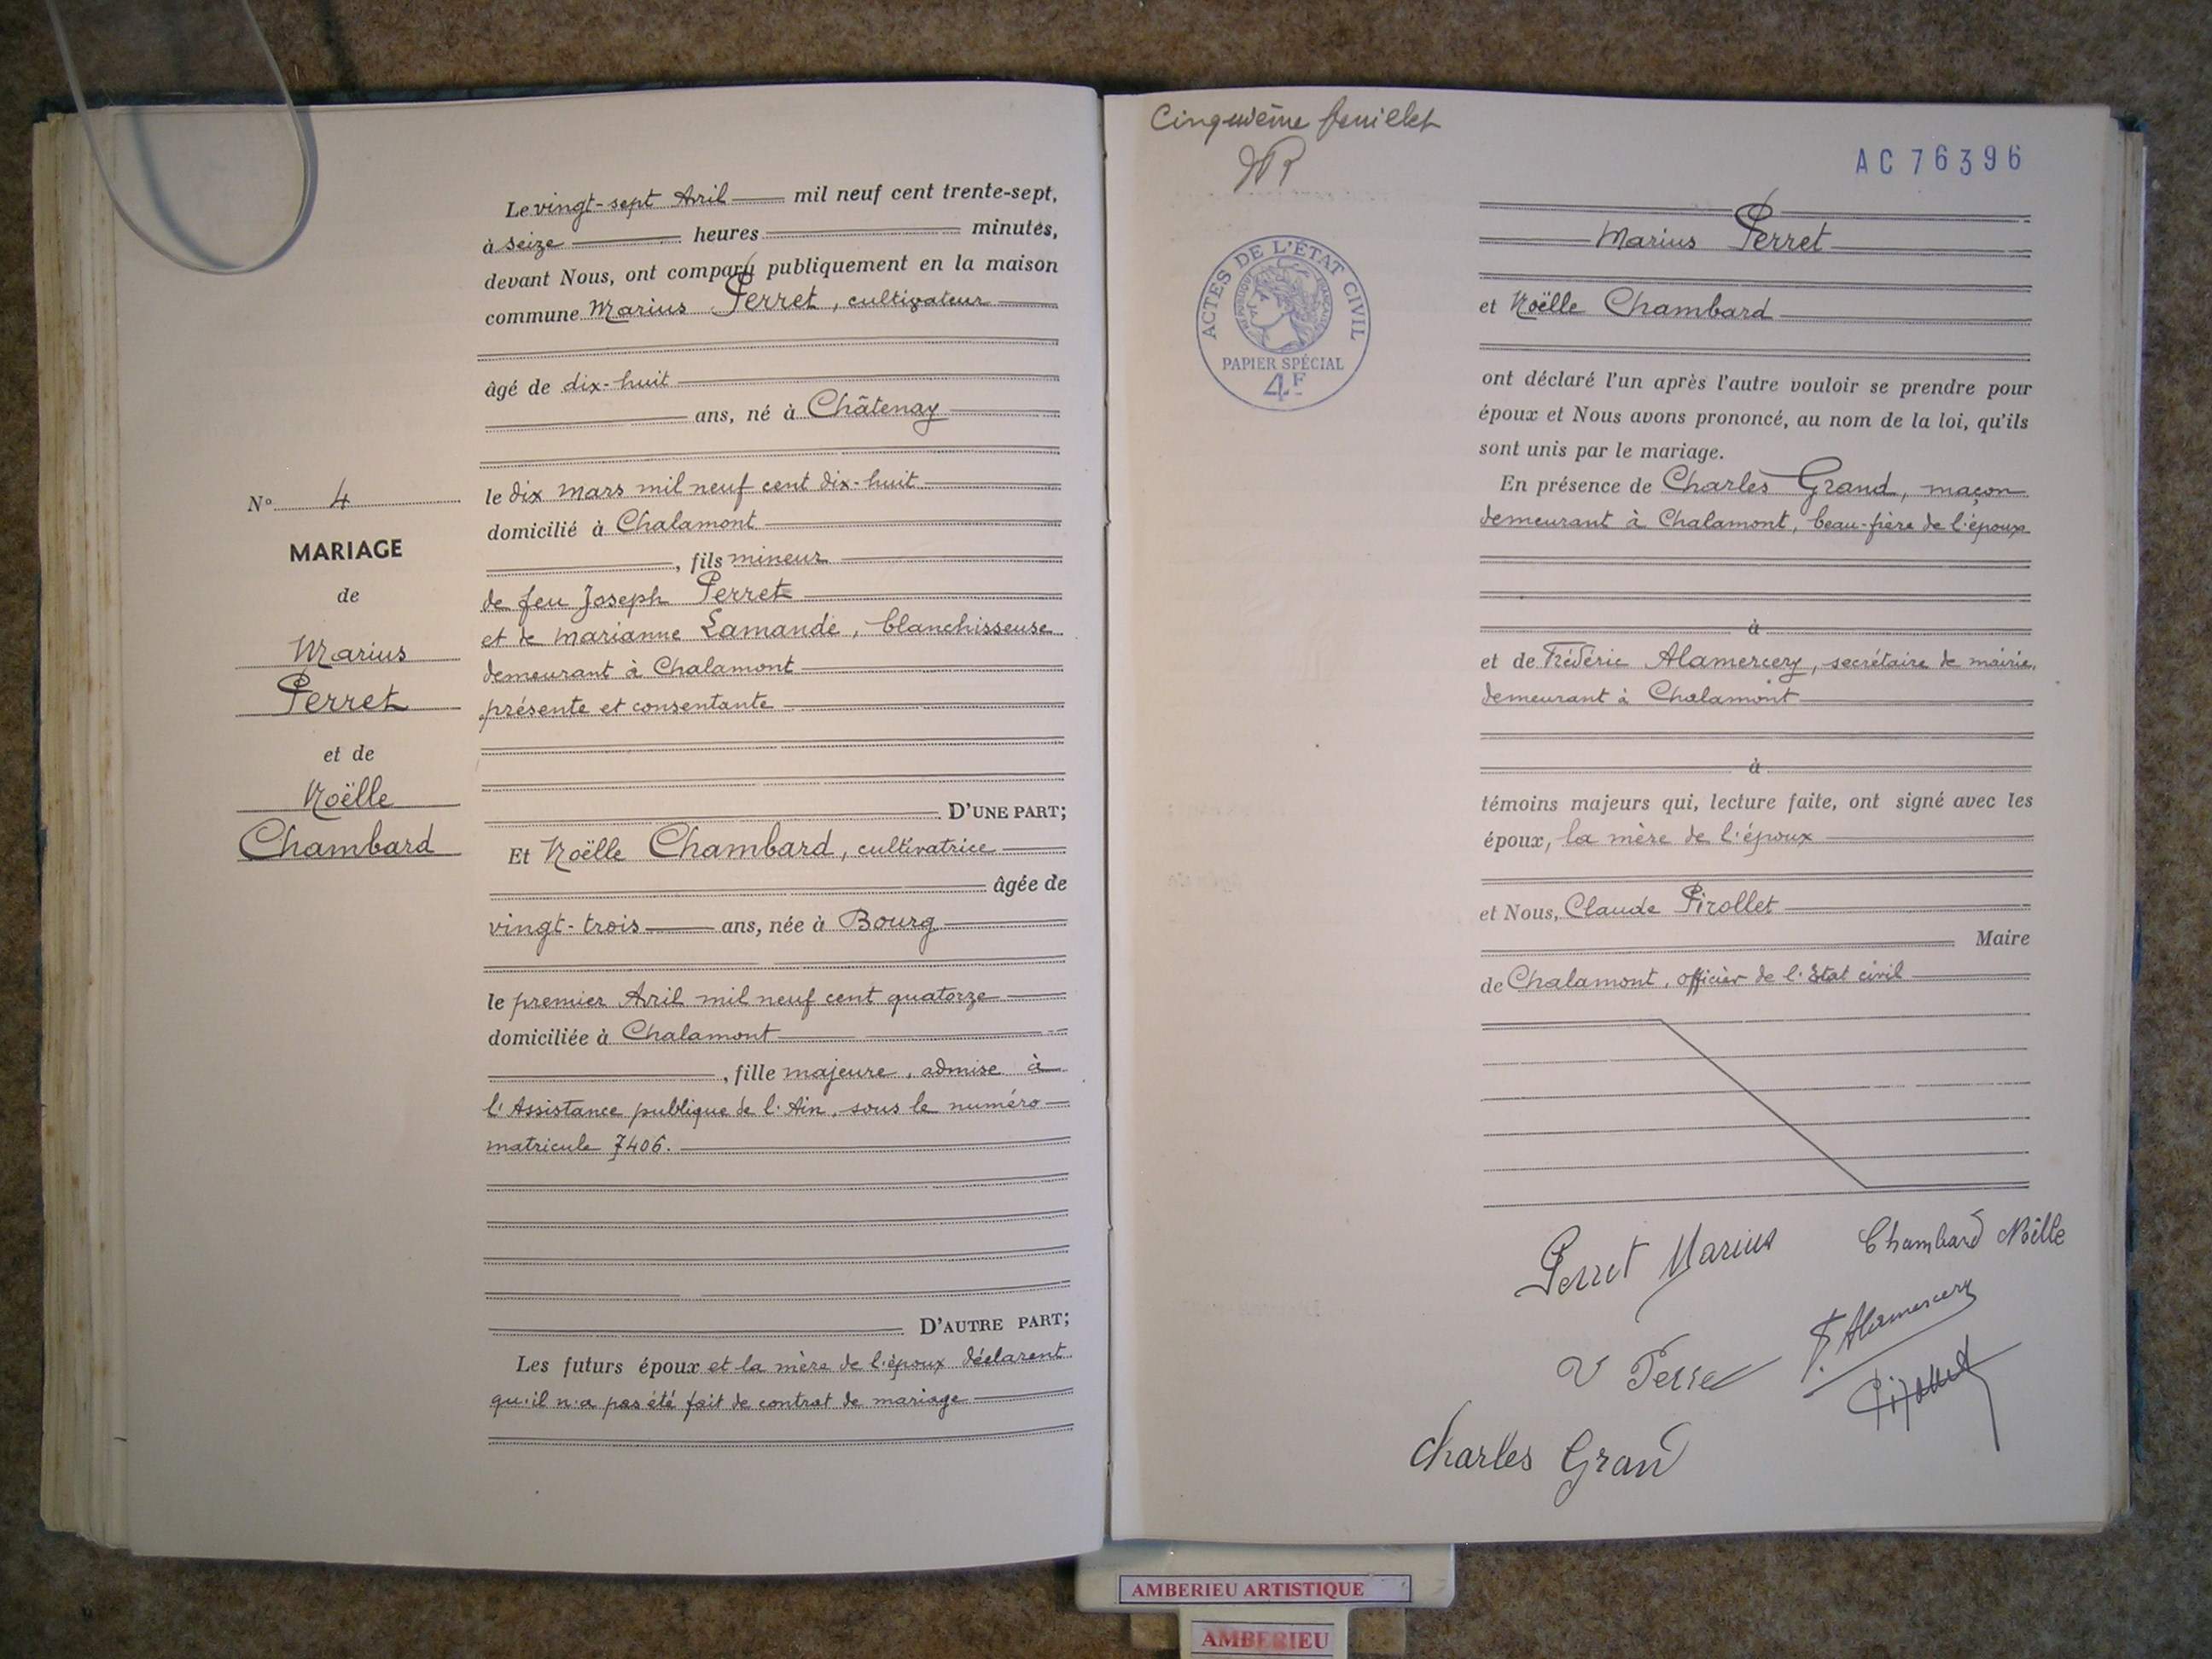 Le vingt-sept Avril mil neuf cent trente-sept,
à seize heures minutes,
devant Nous, ont comparu publiquement en la maison
commune Marius Perret, cultivateur
âgé de dix-huit
ans, né à Châtenay
le dix mars mil neuf cent dix-huit
domicilié à Chalamont
, fils mineur
de feu Joseph Perret
et de Marianne Lamande, blanchisseuse
demeurant à Chalamont
présente et consentante
D'UNE PART;
N° 4
MARIAGE
de
Marius
Perret
et de
Noëlle
Chambard
Et Noëlle Chambard, cultivatrice
âgée de
vingt-trois ans, née à Bourg
le premier Avril mil neuf cent quatorze
domiciliée à Chalamont
, fille majeure, admise à
l'Assistance publique de l'Ain, sous le numéro
matricule 7406.
D'AUTRE PART;
Les futurs époux et la mère de l'époux déclarent
qu'il n'a pas été fait de contrat de mariage
Cinquième feuillet
AC 76396
ACTES DE L'ÉTAT CIVIL
RÉPUBLIQUE FRANÇAISE
PAPIER SPÉCIAL
4F
Marius Perret
et Noëlle Chambard
ont déclaré l'un après l'autre vouloir se prendre pour
époux et Nous avons prononcé, au nom de la loi, qu'ils
sont unis par le mariage.
En présence de Charles Grand, maçon
demeurant à Chalamont, beau-frère de l'époux
à
et de Frédéric Alamercery, secrétaire de mairie,
demeurant à Chalamont
à
témoins majeurs qui, lecture faite, ont signé avec les
époux, la mère de l'époux
et Nous, Claude Pirollet
Maire
de Chalamont, officier de l'Etat civil
Perret Marius
Chambard Noëlle
F. Alamercery
V Perret
Pirollet
Charles Grand
AMBERIEU ARTISTIQUE
AMBERIEU